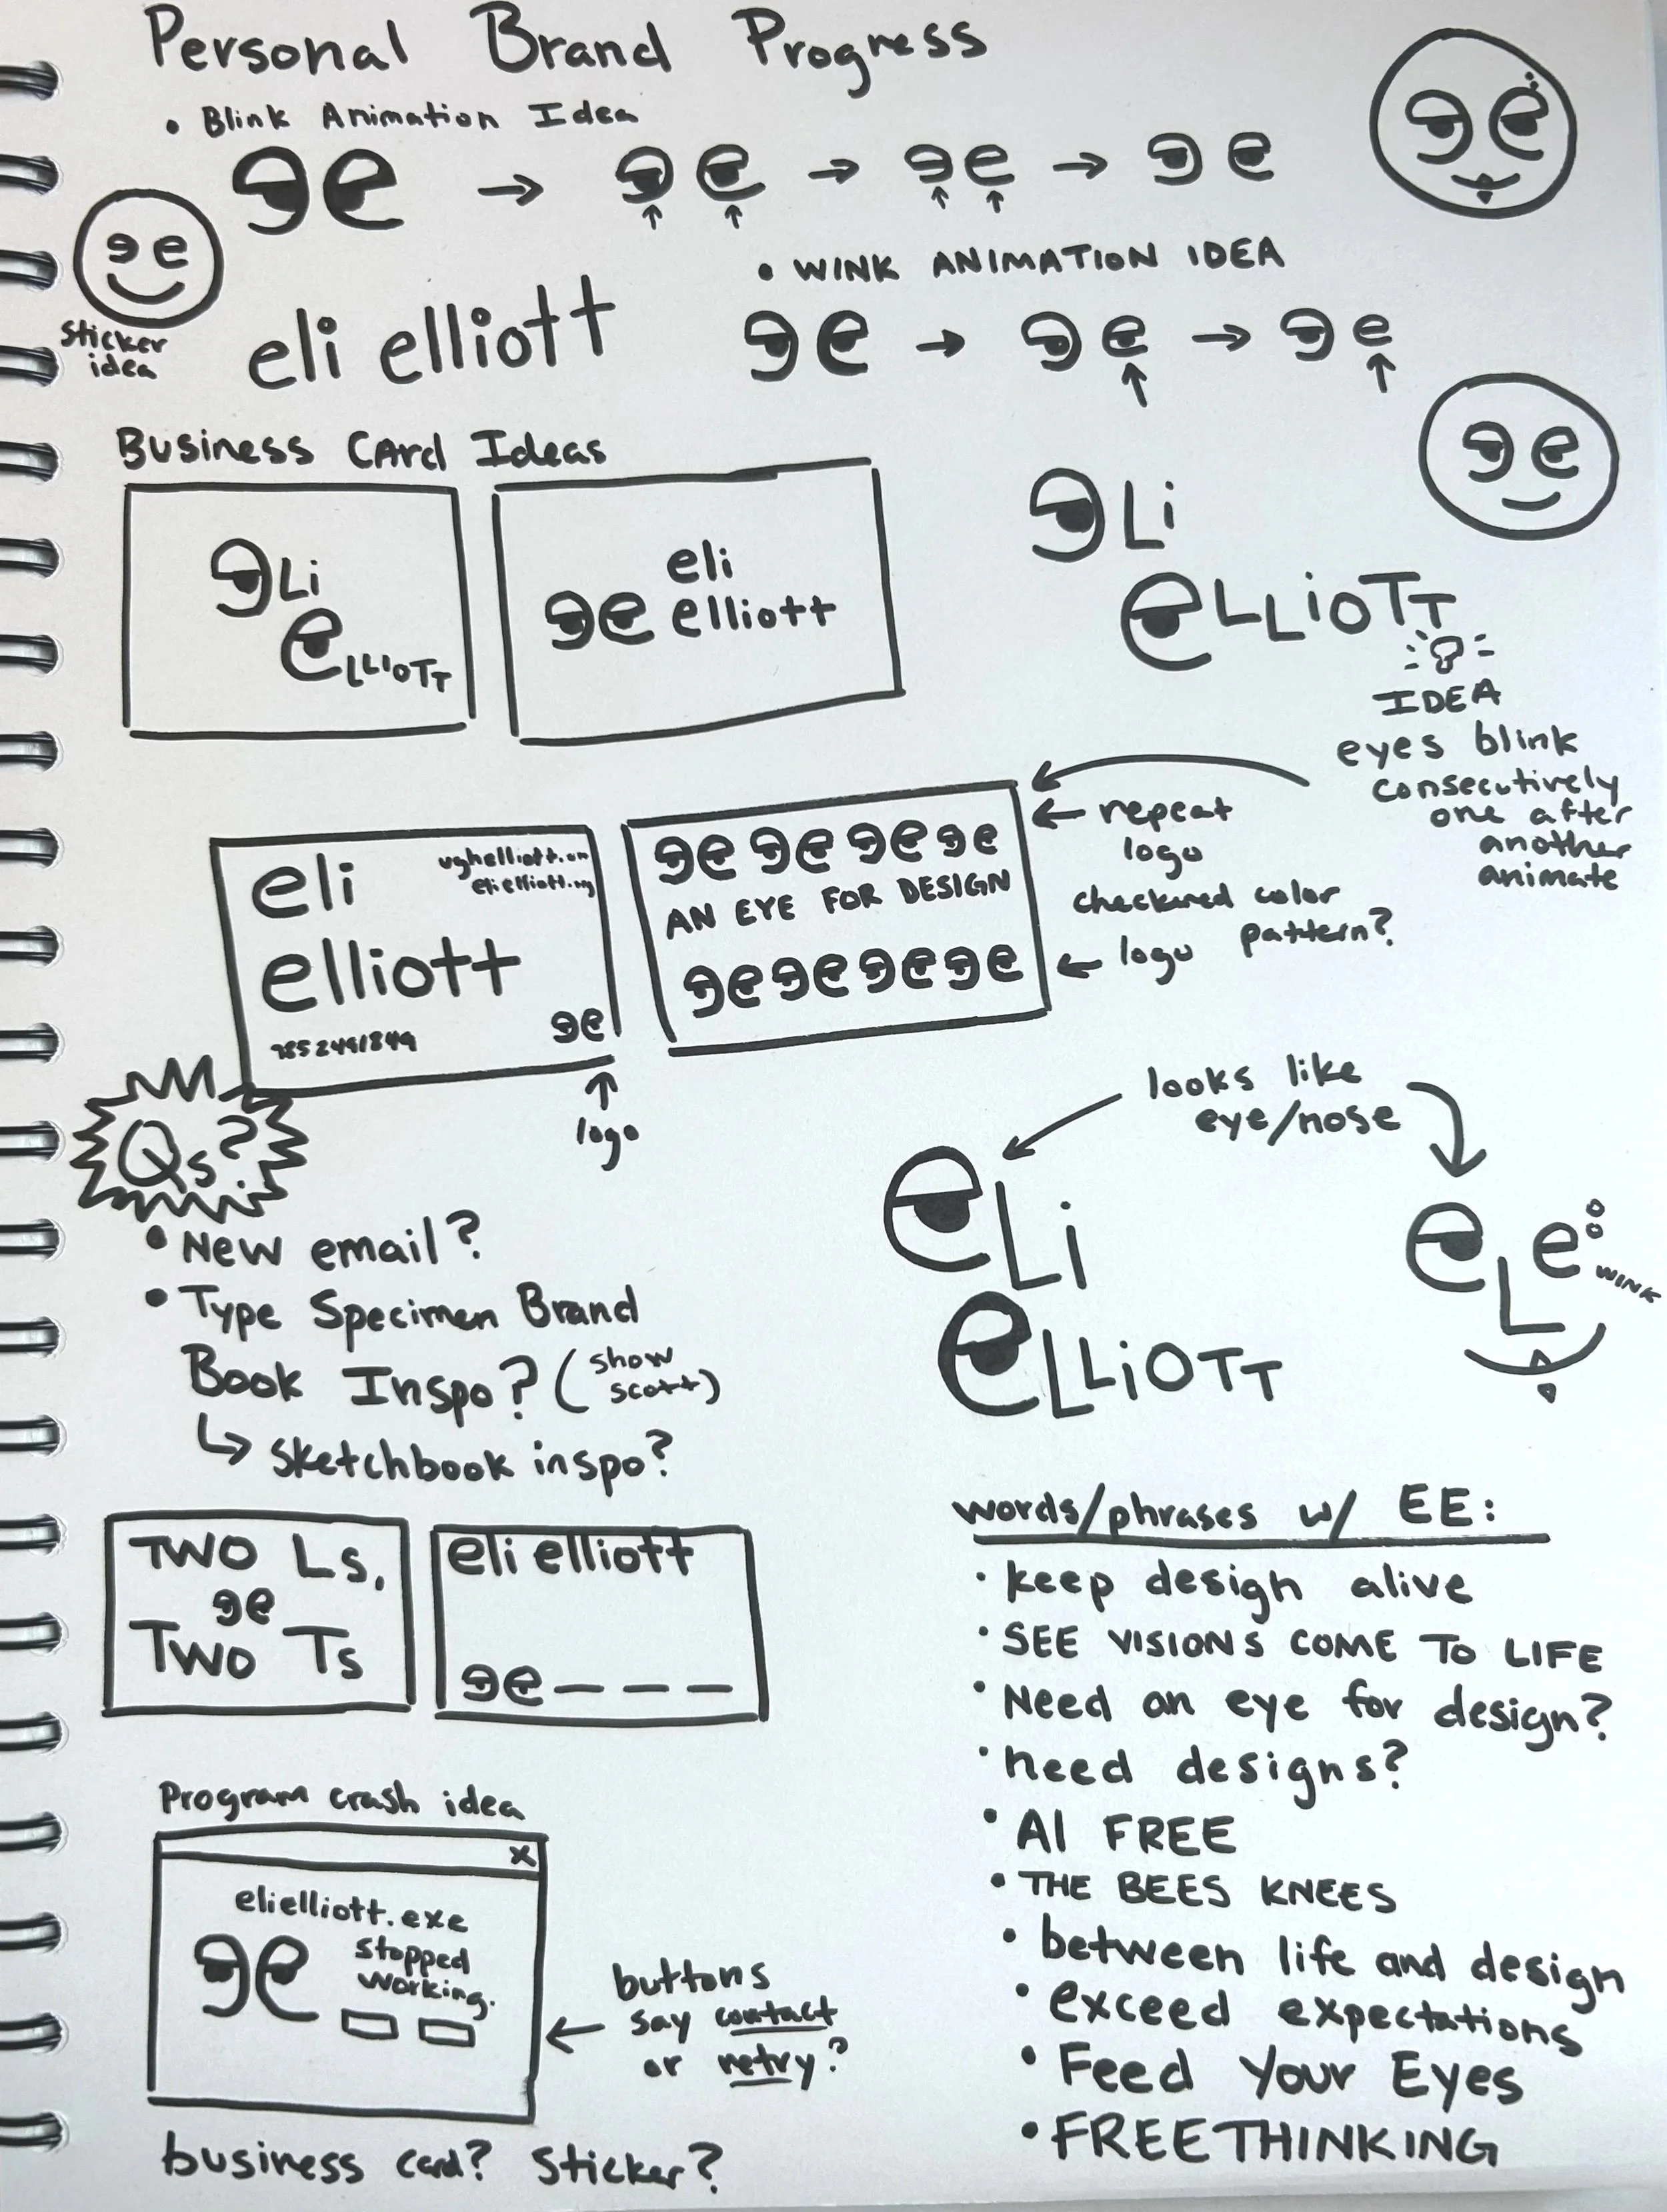 Personal Brand Progress
• Blink Animation Idea
ee → ee → ee → ee
ee
sticker
idea
eli elliott
• WINK ANIMATION IDEA
ee → ee → ee
ee
ee
Business CArd Ideas
eLi
eLLIOTT
eli
ee elliott
eLi
eLLiOTT
IDEA
eyes blink
consecutively
one after
another
animate
eli
elliott
ee
logo
ee ee ee ee
AN EYE FOR DESIGN
ee ee ee ee
← repeat
logo
checkered color
pattern?
← logo
Qs?
• New email?
• Type Specimen Brand
Book Inspo? (show
scott)
↳ sketchbook inspo?
looks like
eye/nose
eLi
eLLiOTT
eLe
WINK
TWO Ls,
ee
TWO Ts
eli elliott
ee _ _ _
words/phrases w/ EE:
• keep design alive
• SEE VISIONS COME TO LIFE
• Need an eye for design?
• need designs?
• AI FREE
• THE BEES KNEES
• between life and design
• exceed expectations
• Feed Your Eyes
• FREETHINKING
Program crash idea
x
elielliott.exe
ee stopped
working.
← buttons
say contact
or retry?
business card? sticker?